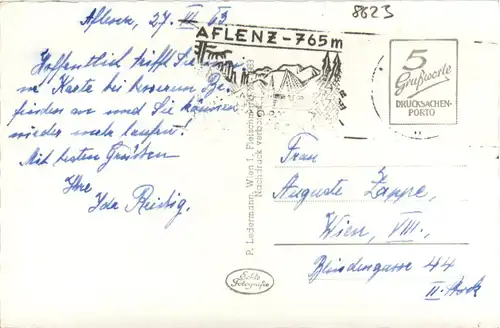 8623
Aflenz, 27. III 63
AFLENZ - 765 m
Hoffentlich trifft Sie
m Karte bei besserem Be-
finden an und Sie können
wieder mehr laufen!
Mit besten Grüßen
Ihre
Ida
5
Grußworte
DRUCKSACHEN-
PORTO
P. Ledermann, Wien I, Fleischmarkt
Nachdruck verboten
Echte
Fotografie
Frau
Auguste Zappe,
Wien, VIII.,
Blindengasse 44
II. Stock